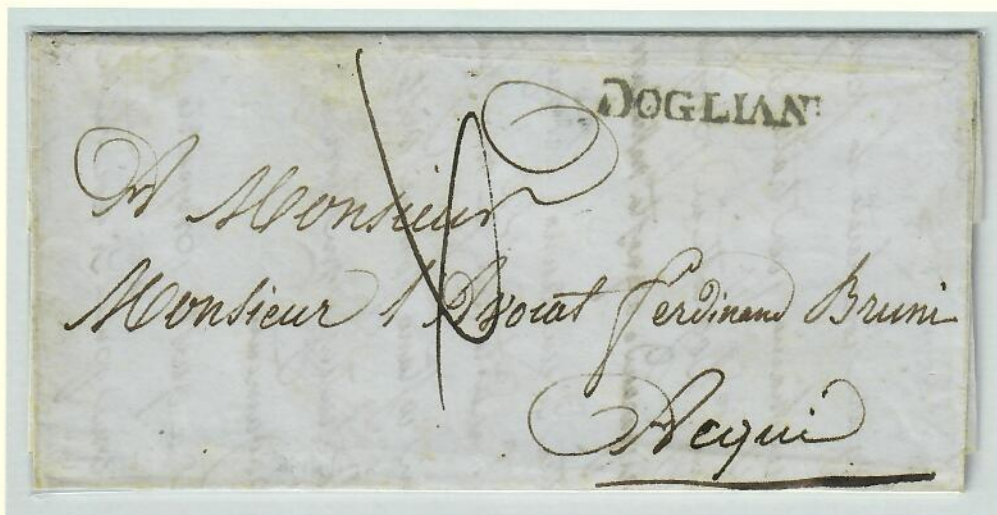 DOGLIANI
A Monsieur
Monsieur l'Avocat Ferdinand Bruni
Acqui